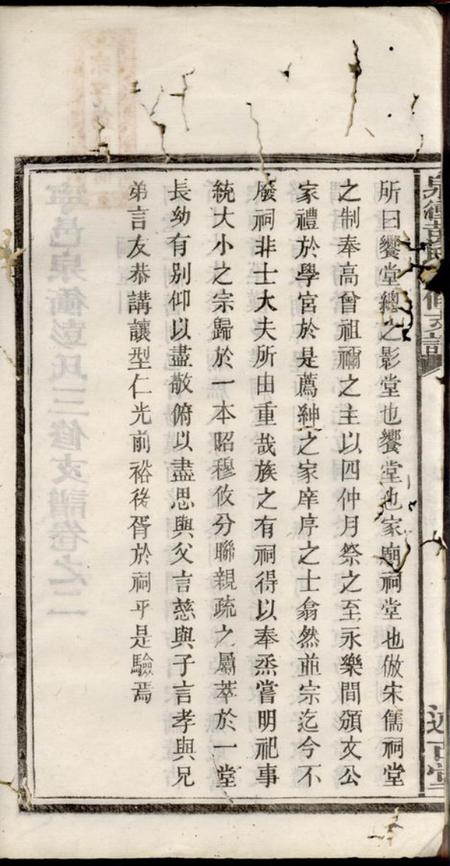 所曰饗堂總之影堂也饗堂也家廟祠堂也倣宋儒祠堂
之制奉高曾祖禰之主以四仲月祭之至永樂間頒文公
家禮於學宮於是薦紳之家庠序之士翕然並宗迄今不
廢祠非士大夫所由重哉族之有祠得以奉烝嘗明祀事
統大小之宗歸於一本昭穆攸分聯親疏之屬萃於一堂
長幼有別仰以盡敬俯以盡思與父言慈與子言孝與兄
弟言友恭講讓型仁光前裕後胥於祠乎是驗焉
寧邑泉衝彭氏三修支譜卷之二